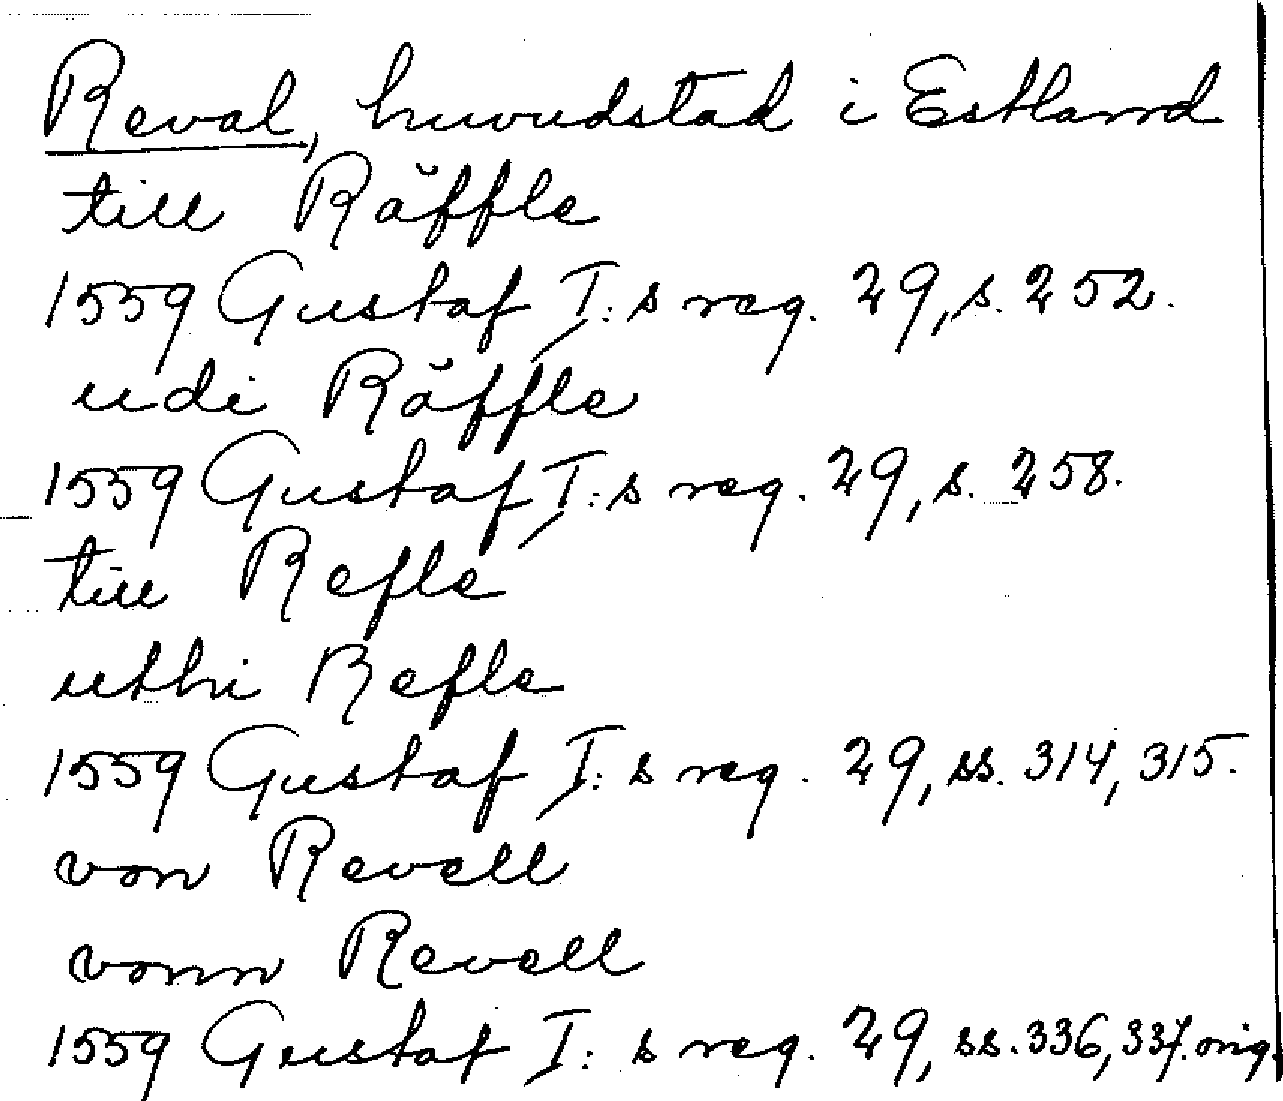 Reval, huvudstad i Estland
till Räffle
1559 Gustaf I:s reg. 29, s. 252.
udi Räffle
1559 Gustaf I:s reg. 29, s. 258.
till Refle
uthi Refle
1559 Gustaf I:s reg. 29, ss. 314, 315.
von Revell
vonn Revell
1559 Gustaf I:s reg. 29, ss. 336, 337. orig.